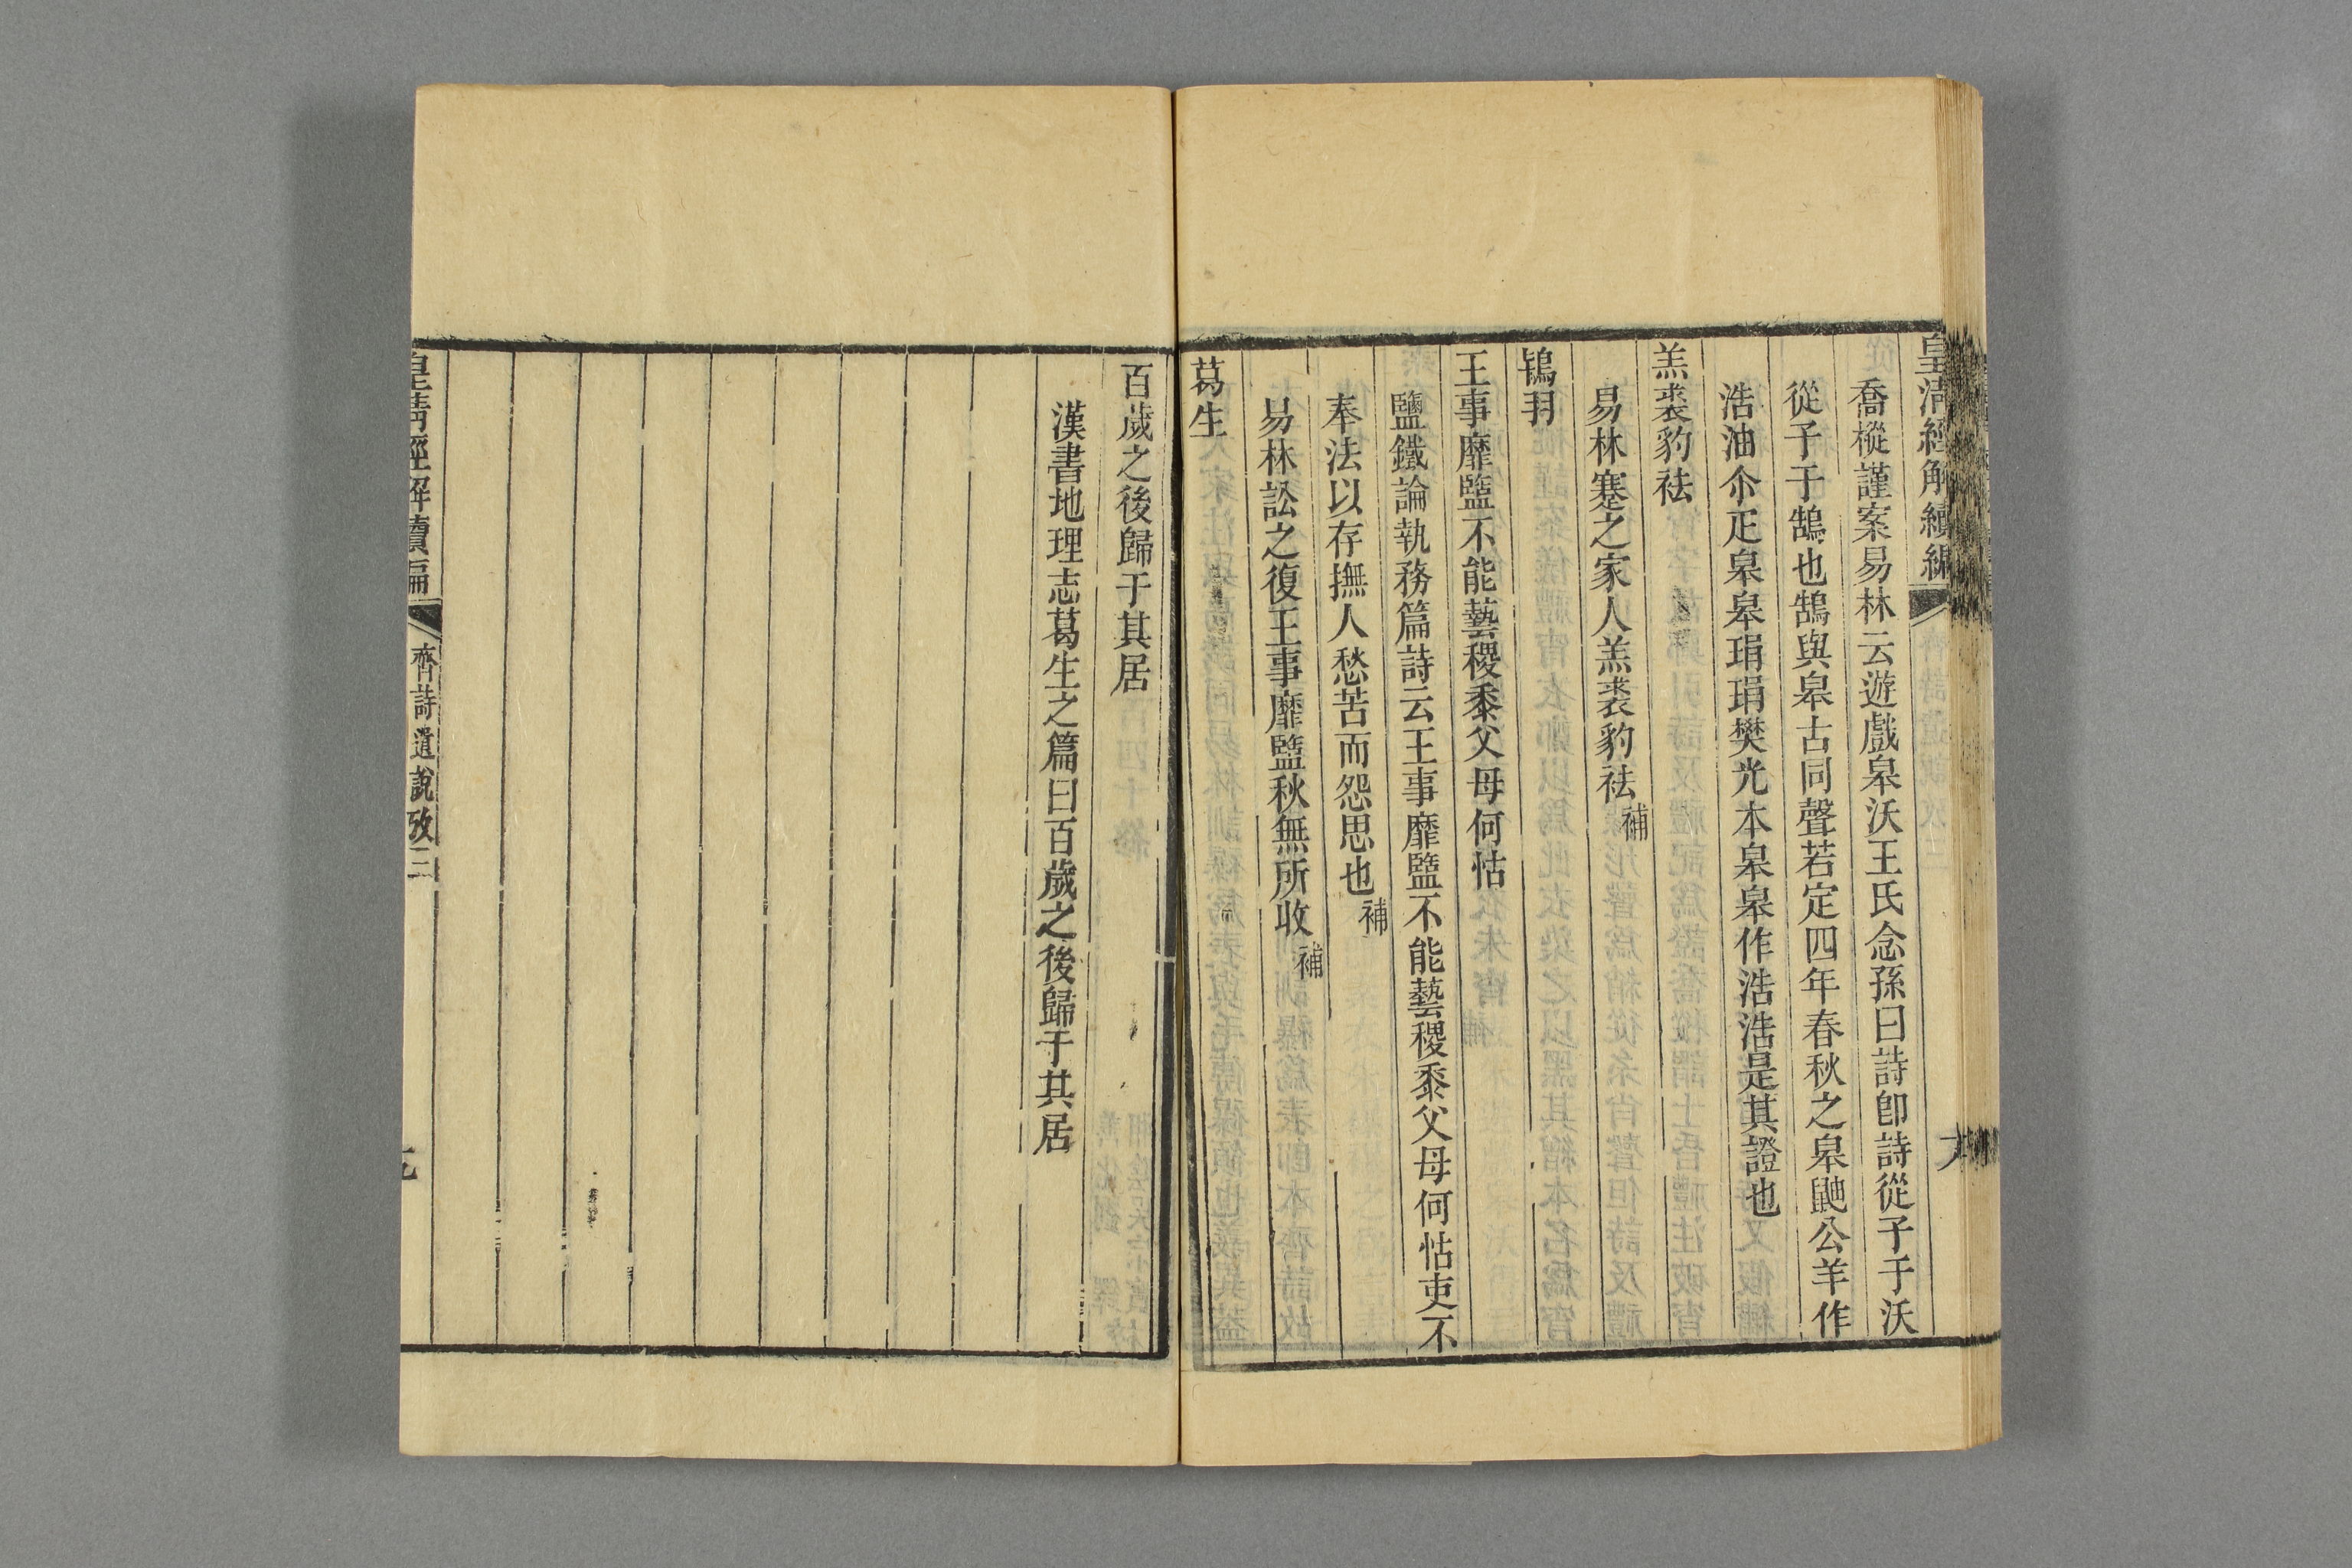 皇清經解續編
喬樅謹案易林云遊戲皋沃王氏念孫曰詩卽詩從子于沃
從子于鵠也鵠與皋古同聲若定四年春秋之皋鼬公羊作
浩油尒疋皋皋琄琄樊光本皋皋作浩浩是其證也
羔裘豹袪
易林蹇之家人羔裘豹袪補
鴇羽
王事靡盬不能藝稷黍父母何怙
鹽鐵論執務篇詩云王事靡盬不能藝稷黍父母何怙吏不
奉法以存撫人愁苦而怨思也補
易林訟之復王事靡盬秋無所收補
葛生
百歲之後歸于其居
漢書地理志葛生之篇曰百歲之後歸于其居
皇清經解續編
齊詩遺說攷三